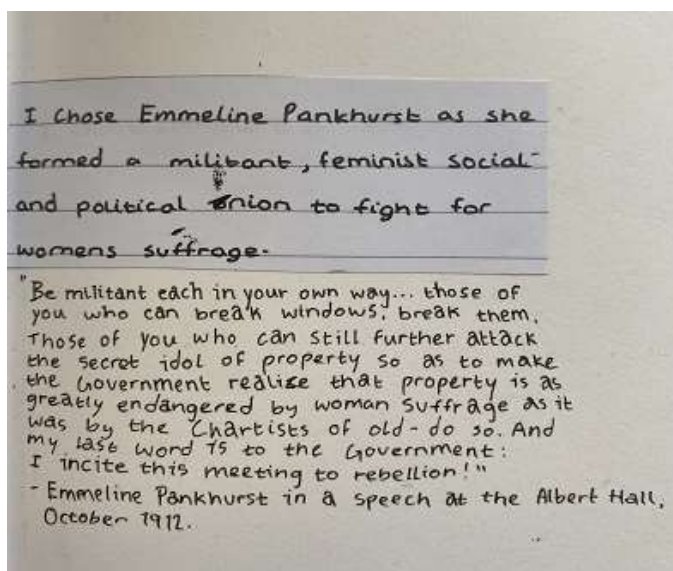 I chose Emmeline Pankhurst as she
formed a militant, feminist social-
and political union to fight for
womens suffrage.
"Be militant each in your own way... those of
you who can break windows, break them.
Those of you who can still further attack
the secret idol of property so as to make
the Government realise that property is as
greatly endangered by woman Suffrage as it
was by the Chartists of old - do so. And
my last word is to the Government:
I incite this meeting to rebellion!"
- Emmeline Pankhurst in a speech at the Albert Hall,
October 1912.